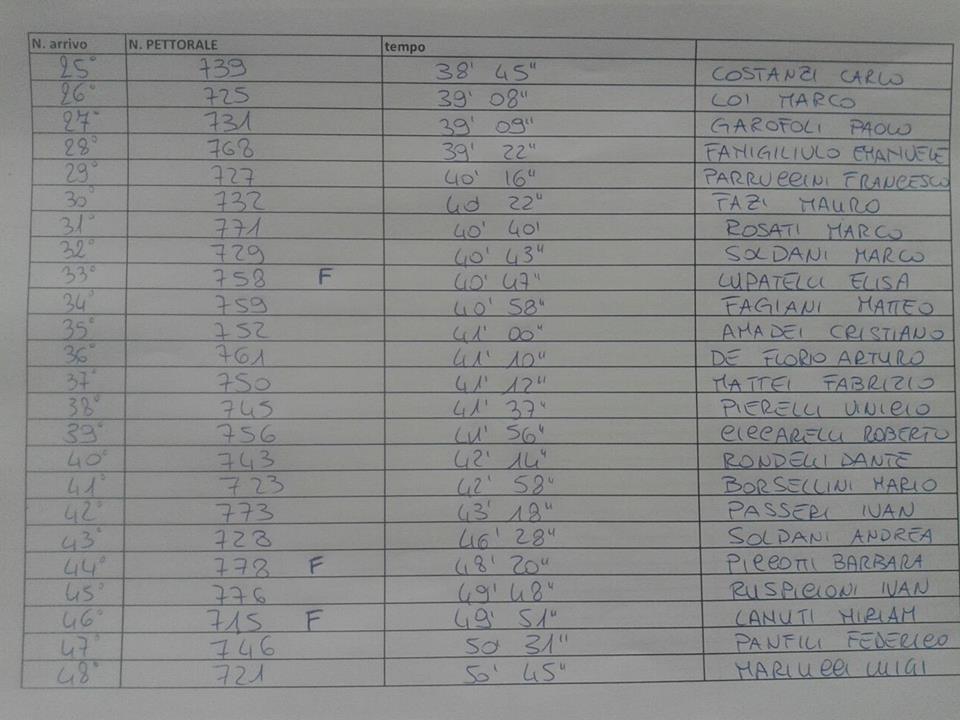 N. arrivo N. PETTORALE tempo
25° 739 38' 45" COSTANZI CARLO
26° 725 39' 08" LOI MARCO
27° 731 39' 09" GAROFOLI PAOLO
28° 768 39' 22" FAMIGILIULO EMANUELE
29° 727 40' 16" PARRUCCINI FRANCESCO
30° 732 40 22" FAZI MAURO
31° 771 40' 40' ROSATI MARCO
32° 729 40' 43" SOLDANI MARCO
33° 758 F 40' 47" LUPATELLI ELISA
34° 759 40' 58" FAGIANI MATTEO
35° 752 41' 00" AMADEI CRISTIANO
36° 761 41' 10" DE FLORIO ARTURO
37° 750 41' 12" MATTEI FABRIZIO
38° 745 41' 37" PIERELLI VINICIO
39° 756 41' 56" CICCARELLI ROBERTO
40° 743 42' 14" RONDELLI DANTE
41° 723 42' 58" BORSELLINI MARIO
42° 773 43' 18" PASSERI IVAN
43° 728 46' 28" SOLDANI ANDREA
44° 778 F 48' 20" PICCOTTI BARBARA
45° 776 49' 48" RUSPICIONI IVAN
46° 715 F 49' 51" LANUTI MIRIAM
47° 746 50 31" PANFILI FEDERICO
48° 721 50' 45" MARIUCCI LUIGI